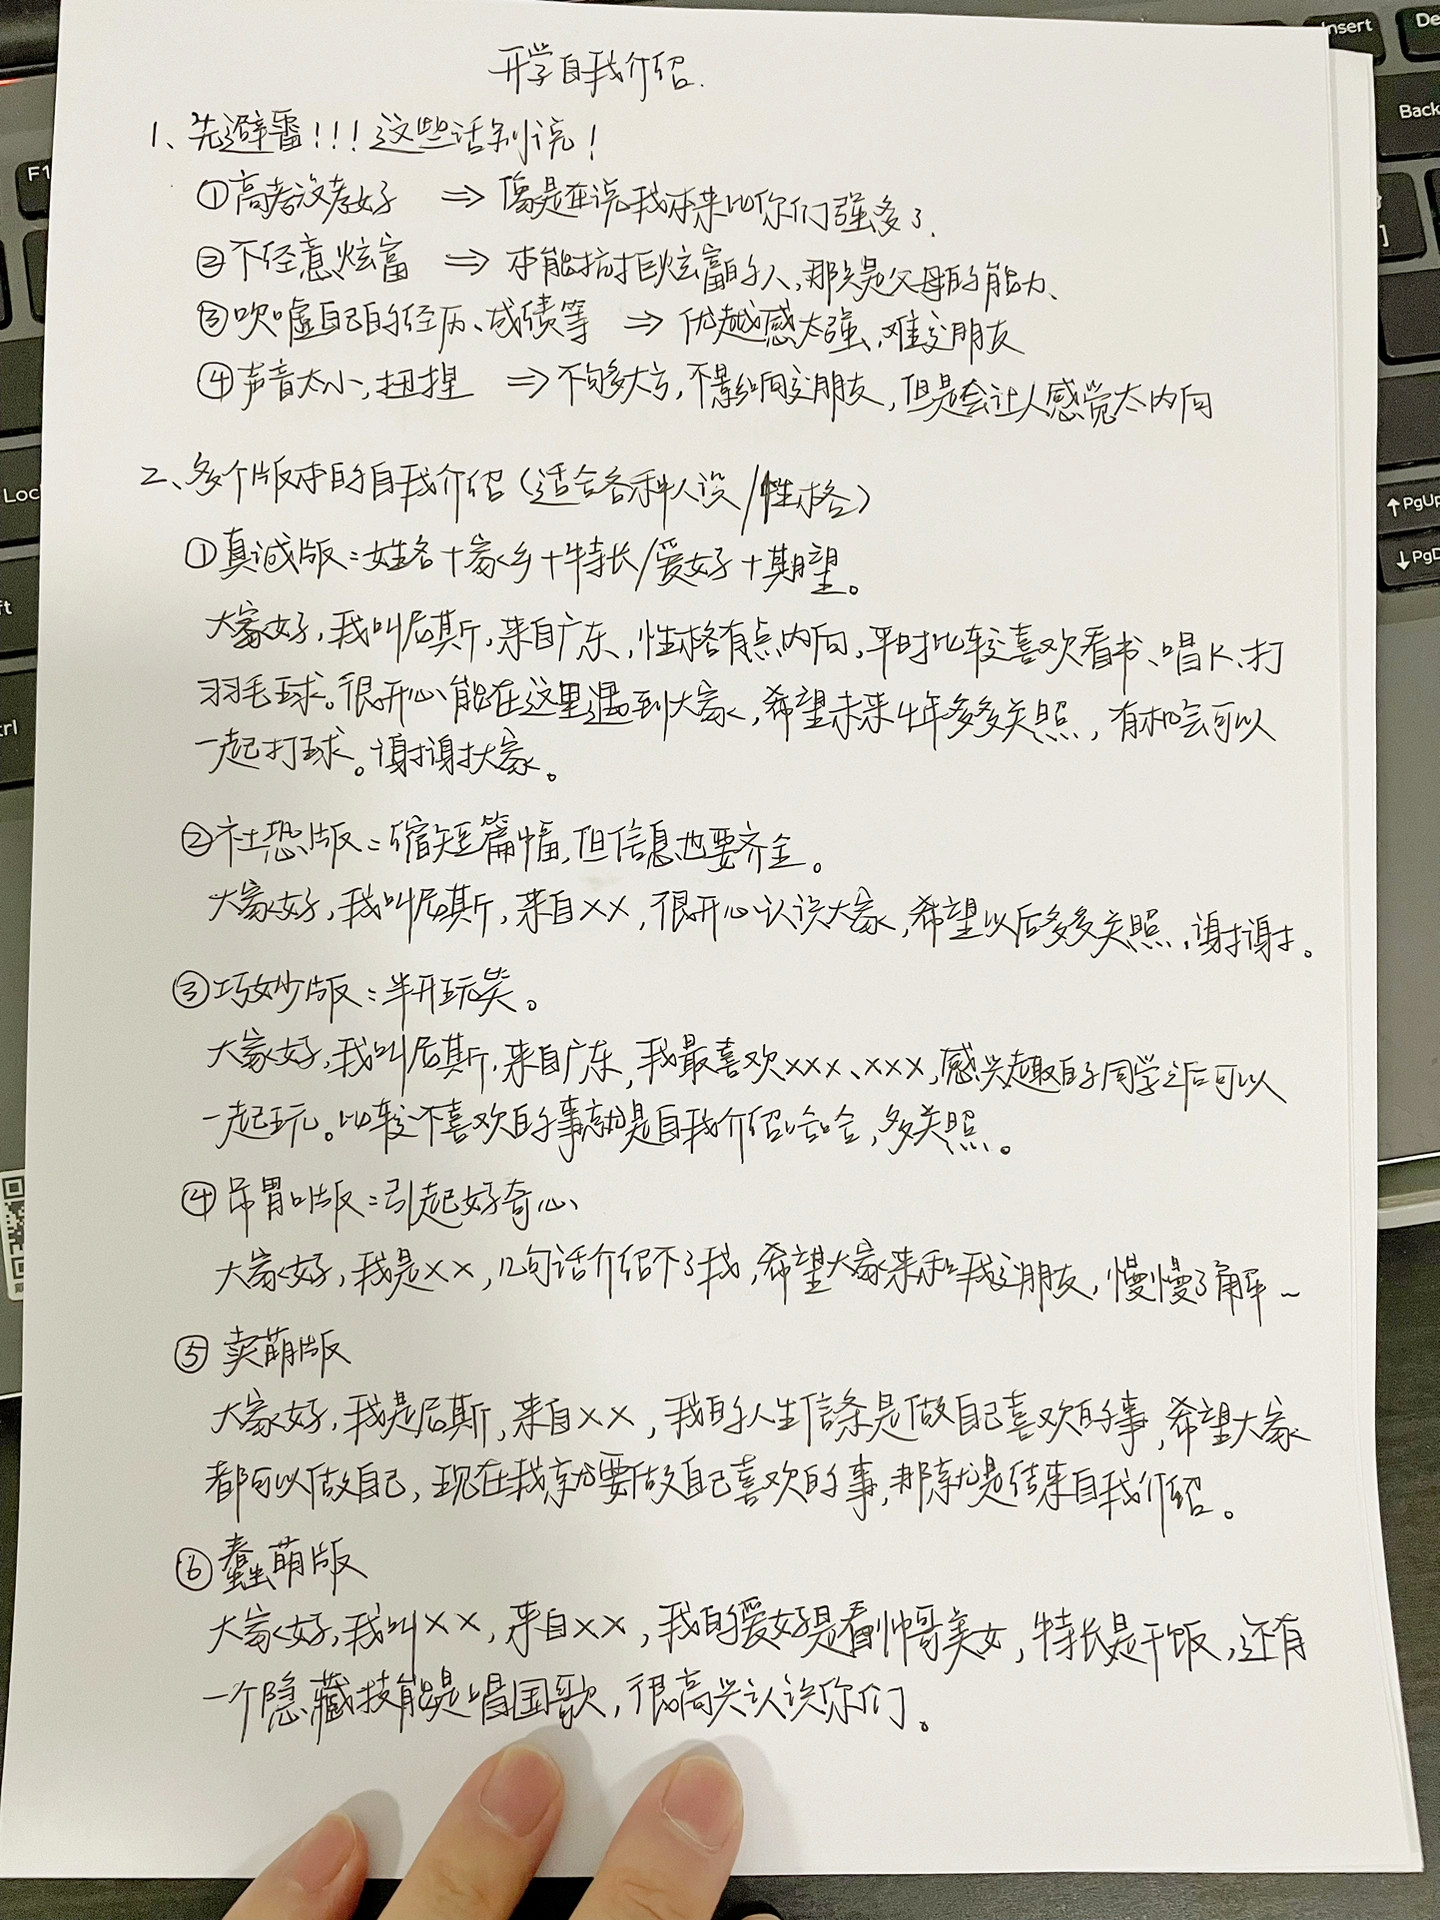 开学自我介绍.
1、先避雷!!!这些话别说!
①高考没考好 ⇒ 像是在说我本来比你们强多了.
②下任意炫富 ⇒ 本能抗拒炫富的人,那只是父母的能力、
③吹嘘自己的经历、成绩等 ⇒ 优越感太强,难交朋友
④声音太小,扭捏 ⇒ 不够大方,不影响交朋友,但是会让人感觉太内向
2、多个版本的自我介绍(适合各种人设/性格)
①真诚版:姓名+家乡+特长/爱好+期望。
大家好,我叫尼斯,来自广东,性格有点内向,平时比较喜欢看书、唱K、打
羽毛球。很开心能在这里遇到大家,希望未来4年多多关照,有机会可以
一起打球。谢谢大家。
②社恐版:缩短篇幅,但信息也要齐全。
大家好,我叫尼斯,来自××,很开心认识大家,希望以后多多关照,谢谢。
③巧妙版:半开玩笑。
大家好,我叫尼斯,来自广东,我最喜欢×××、×××,感兴趣的同学之后可以
一起玩。比较不喜欢的事就是自我介绍哈哈,多关照。
④吊胃口版:引起好奇心
大家好,我是××,几句话介绍不了我,希望大家来和我交朋友,慢慢了解~
⑤卖萌版
大家好,我是尼斯,来自××,我的人生信条是做自己喜欢的事,希望大家
都可以做自己,现在我就要做自己喜欢的事,那就是结束自我介绍。
⑥蠢萌版
大家好,我叫××,来自××,我的爱好是看帅哥美女,特长是干饭,还有
一个隐藏技能是唱国歌,很高兴认识你们。
F1
Loc
ft
rl
Insert
De
Back
]
↑PgUp
↓PgD